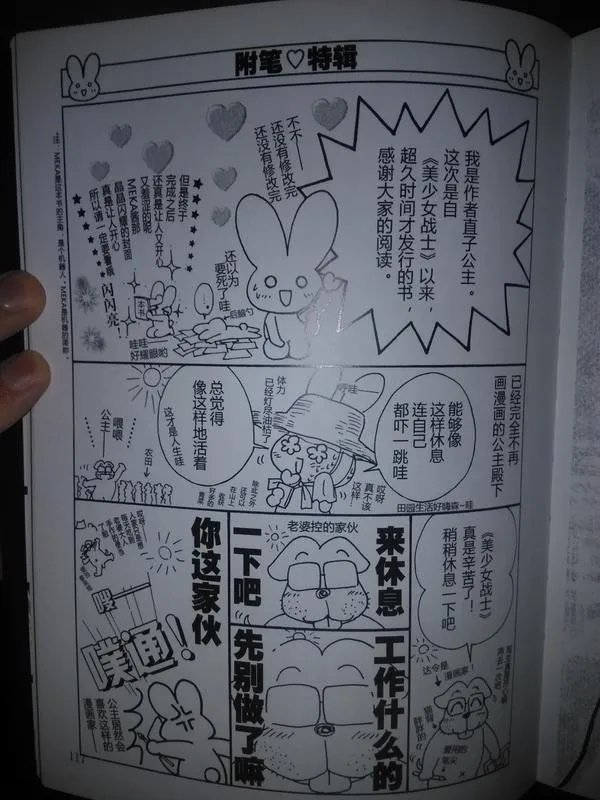 附笔♡特辑
我是作者直子公主。
这次是自
《美少女战士》以来，
超久时间才发行的书，
感谢大家的阅读。
不不——
还没有修改完
还没有修改完
但是终于
完成之后
还真是让人又开心
又羞涩的呢
MEKA酱那
晶晶闪耀的封面
真是让人开心
所以请一定要看哦
闪闪亮！
还以为
要死了哇
后脑勺
本书
哇哇
好耀眼哟
已经完全不再
画漫画的公主殿下
能够像
这样休息
连自己
都吓一跳哇
哎呀
真不该
这样
田园生活好嗨森~哇
呼哇
体力
已经灯尽油枯了
总觉得
像这样地活着
这才是人生哇
除此之外
还可以
在山上
收获
好多的
青菜
农田
喂喂
公主——
《美少女战士》
真是辛苦了！
稍稍休息一下吧
达令是
漫画家！
爱用的
笔尖
老婆控的家伙
来休息
一下吧
工作什么的
先别做了嘛
你这家伙
噗通！
公主居然会
喜欢这样的
漫画家——
117